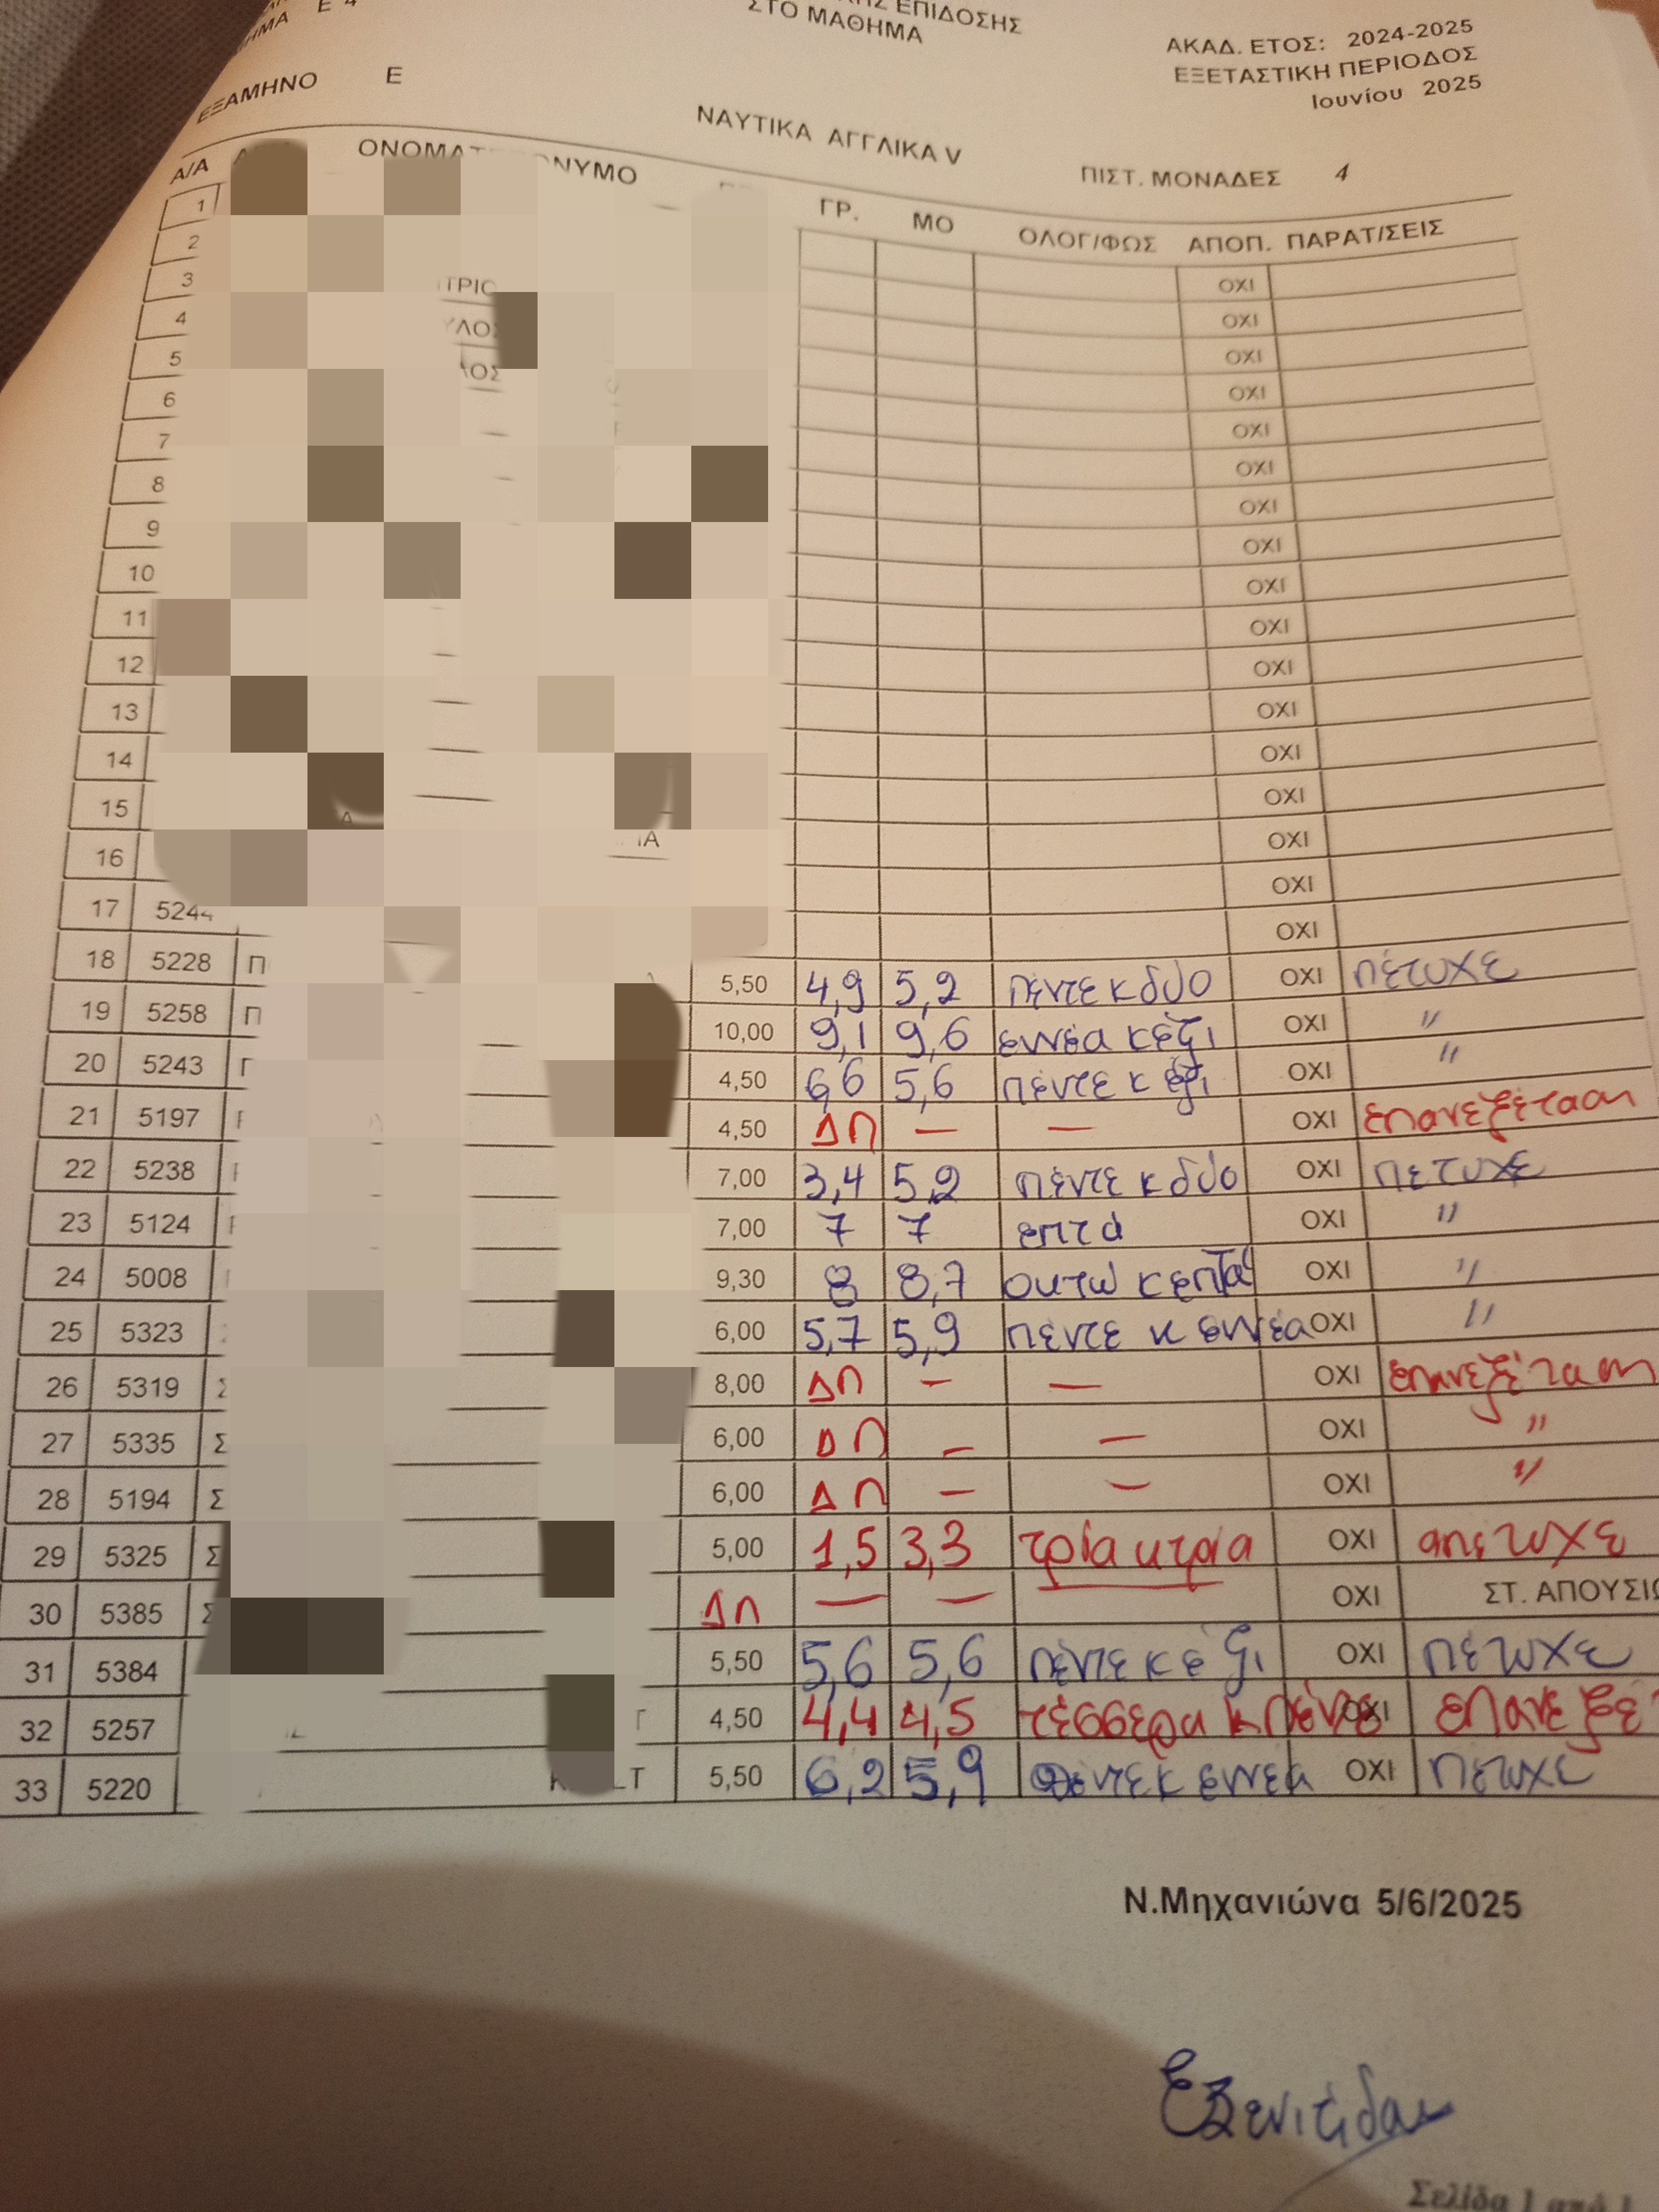 Ε 4
ΕΠΙΔΟΣΗΣ
ΣΤΟ ΜΑΘΗΜΑ
ΑΚΑΔ. ΕΤΟΣ: 2024-2025
ΕΞΕΤΑΣΤΙΚΗ ΠΕΡΙΟΔΟΣ
Ιουνίου 2025
ΕΞΑΜΗΝΟ Ε
ΝΑΥΤΙΚΑ ΑΓΓΛΙΚΑ V
ΠΙΣΤ. ΜΟΝΑΔΕΣ 4
Α/Α ΓΡ. ΜΟ ΟΛΟΓ/ΦΩΣ ΑΠΟΠ. ΠΑΡΑΤ/ΣΕΙΣ
1 ΟΧΙ
2 ΟΧΙ
3 ΟΧΙ
4 ΟΧΙ
5 ΟΧΙ
6 ΟΧΙ
7 ΟΧΙ
8 ΟΧΙ
9 ΟΧΙ
10 ΟΧΙ
11 ΟΧΙ
12 ΟΧΙ
13 ΟΧΙ
14 ΟΧΙ
15 ΟΧΙ
16 ΟΧΙ
17 5244 ΟΧΙ
18 5228 Π 5,50 4,9 5,2 πέντε κ δύο ΟΧΙ πέτυχε
19 5258 Π 10,00 9,1 9,6 εννέα κ έξι ΟΧΙ "
20 5243 4,50 6,6 5,6 πέντε κ έξι ΟΧΙ "
21 5197 4,50 ΔΠ — — ΟΧΙ επανεξέταση
22 5238 7,00 3,4 5,2 πέντε κ δύο ΟΧΙ πέτυχε
23 5124 7,00 7 7 επτά ΟΧΙ "
24 5008 9,30 8 8,7 οκτώ κ επτά ΟΧΙ "
25 5323 6,00 5,7 5,9 πέντε κ εννέα ΟΧΙ "
26 5319 Σ 8,00 ΔΠ — — ΟΧΙ επανεξέταση
27 5335 Σ 6,00 ΔΠ — — ΟΧΙ "
28 5194 Σ 6,00 ΔΠ — — ΟΧΙ "
29 5325 Σ 5,00 1,5 3,3 τρία κ τρία ΟΧΙ απέτυχε
30 5385 Σ ΔΠ — — ΟΧΙ ΣΤ. ΑΠΟΥΣΙΩ
31 5384 5,50 5,6 5,6 πέντε κ έξι ΟΧΙ πέτυχε
32 5257 4,50 4,4 4,5 τέσσερα κ πέντε ΟΧΙ επανεξέ
33 5220 5,50 6,2 5,9 πέντε κ εννέα ΟΧΙ πέτυχε
Ν.Μηχανιώνα 5/6/2025
Σελίδα 1 από 1